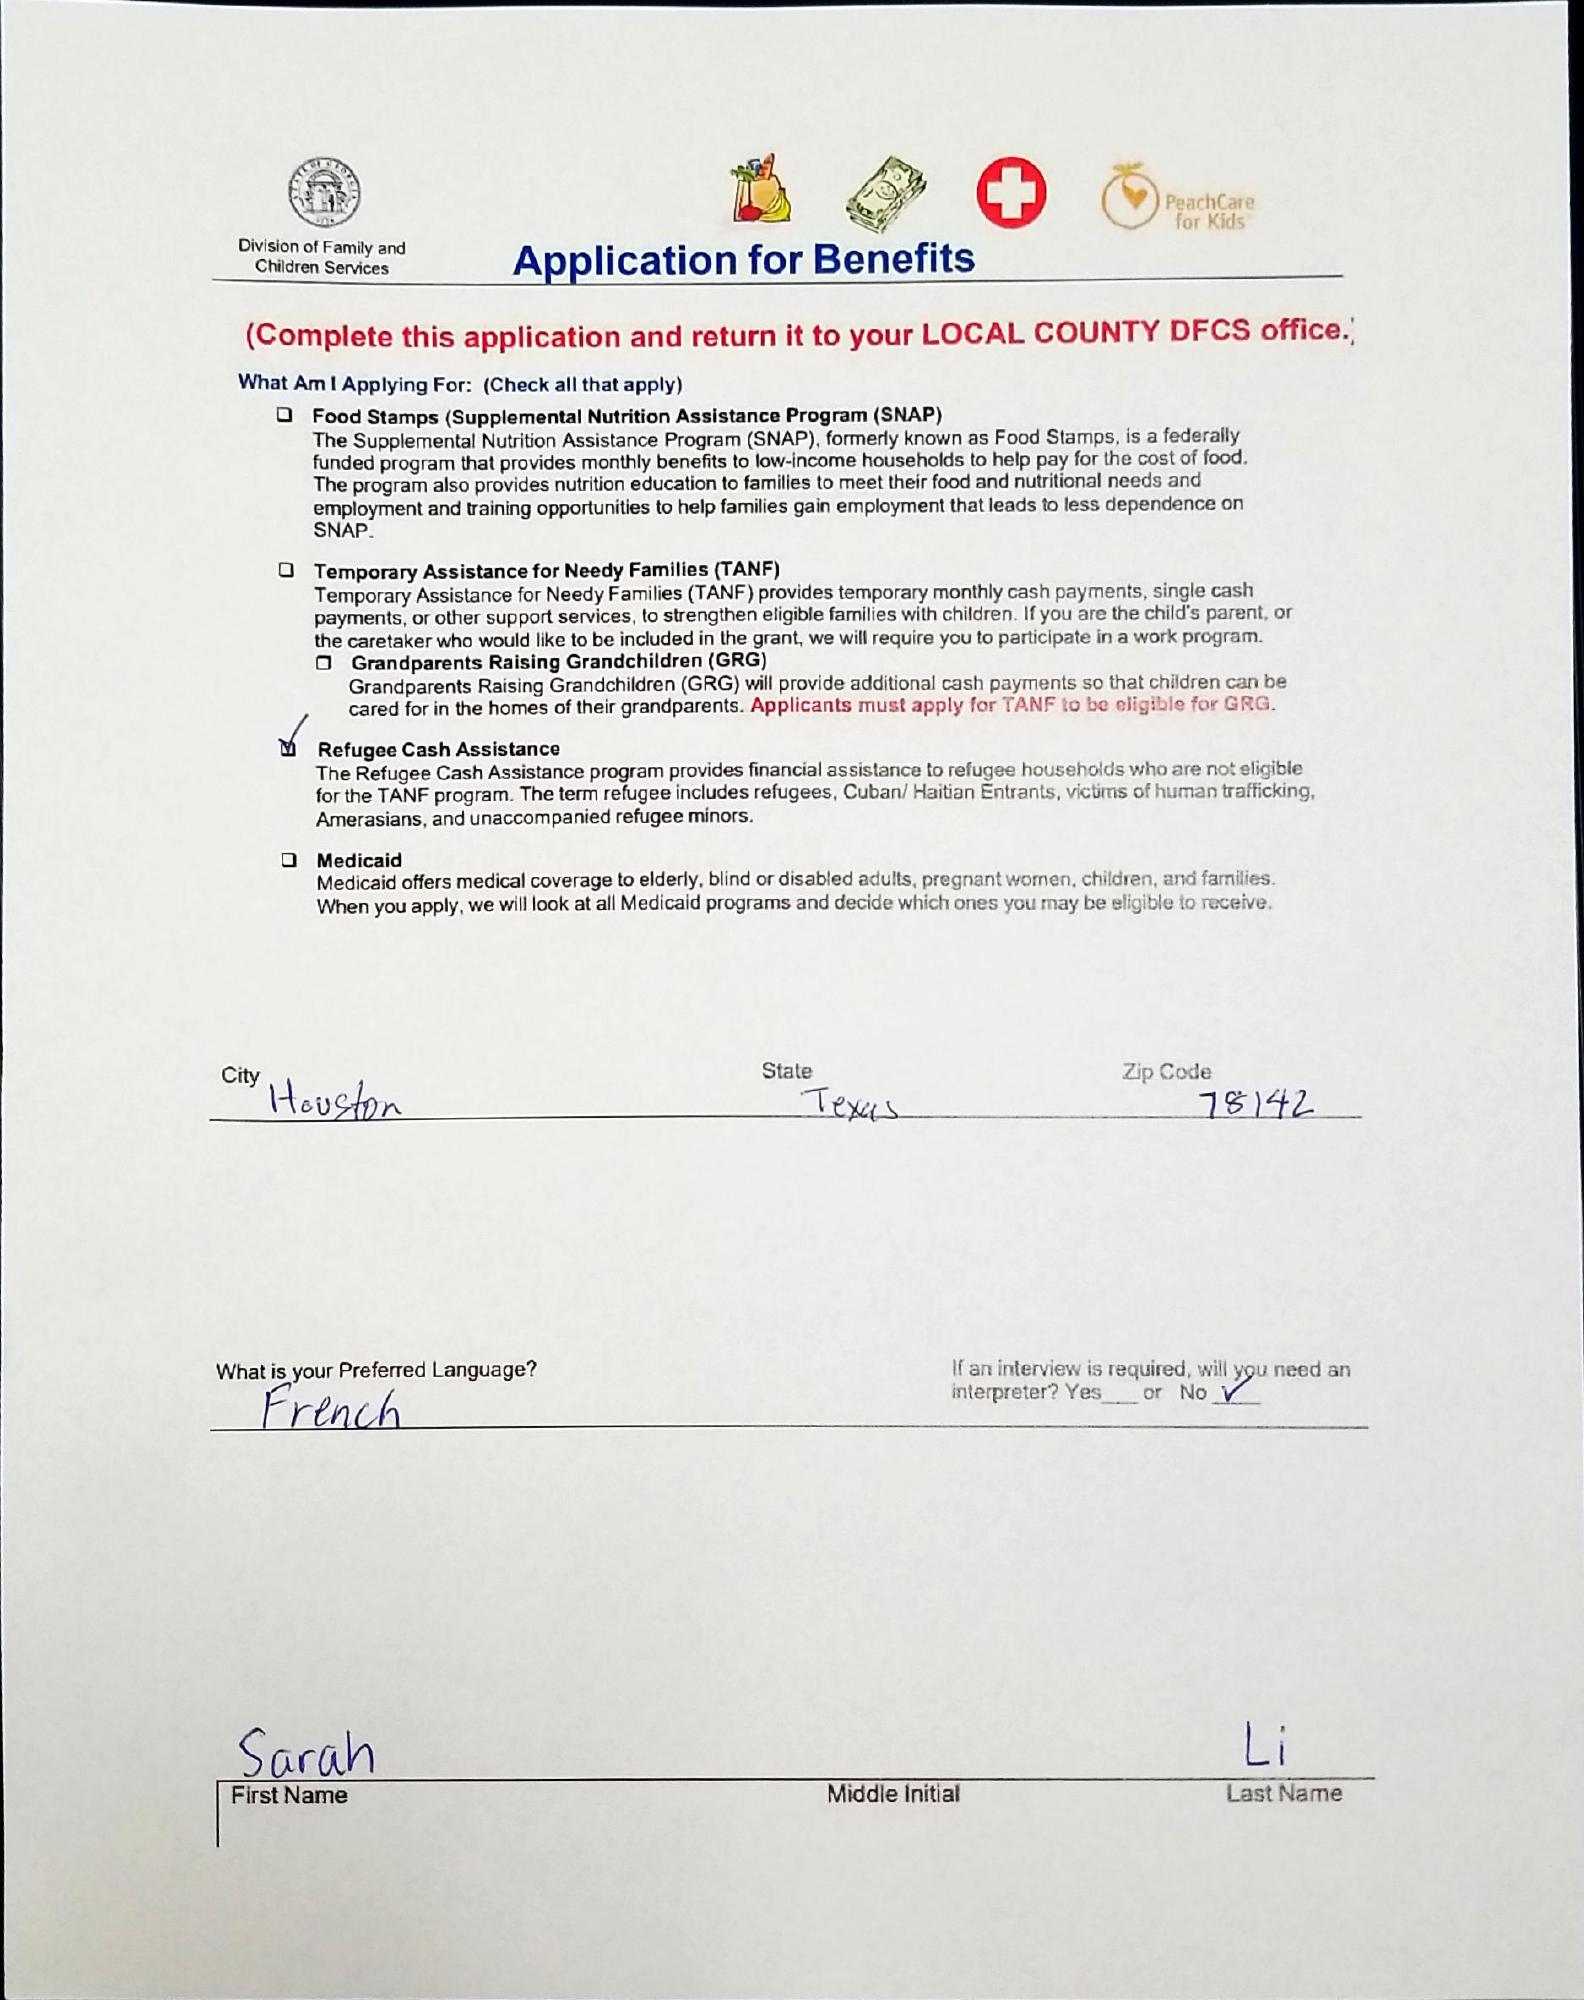 STATE OF GEORGIA
1776
PeachCare
for Kids
Division of Family and
Children Services
Application for Benefits
(Complete this application and return it to your LOCAL COUNTY DFCS office.)
What Am I Applying For: (Check all that apply)
Food Stamps (Supplemental Nutrition Assistance Program (SNAP)
The Supplemental Nutrition Assistance Program (SNAP), formerly known as Food Stamps, is a federally
funded program that provides monthly benefits to low-income households to help pay for the cost of food.
The program also provides nutrition education to families to meet their food and nutritional needs and
employment and training opportunities to help families gain employment that leads to less dependence on
SNAP.
Temporary Assistance for Needy Families (TANF)
Temporary Assistance for Needy Families (TANF) provides temporary monthly cash payments, single cash
payments, or other support services, to strengthen eligible families with children. If you are the child's parent, or
the caretaker who would like to be included in the grant, we will require you to participate in a work program.
Grandparents Raising Grandchildren (GRG)
Grandparents Raising Grandchildren (GRG) will provide additional cash payments so that children can be
cared for in the homes of their grandparents. Applicants must apply for TANF to be eligible for GRG.
Refugee Cash Assistance
The Refugee Cash Assistance program provides financial assistance to refugee households who are not eligible
for the TANF program. The term refugee includes refugees, Cuban/ Haitian Entrants, victims of human trafficking,
Amerasians, and unaccompanied refugee minors.
Medicaid
Medicaid offers medical coverage to elderly, blind or disabled adults, pregnant women, children, and families.
When you apply, we will look at all Medicaid programs and decide which ones you may be eligible to receive.
City State Zip Code
Houston Texas 78142
What is your Preferred Language? If an interview is required, will you need an
interpreter? Yes___ or No ✓
French
Sarah Li
First Name Middle Initial Last Name